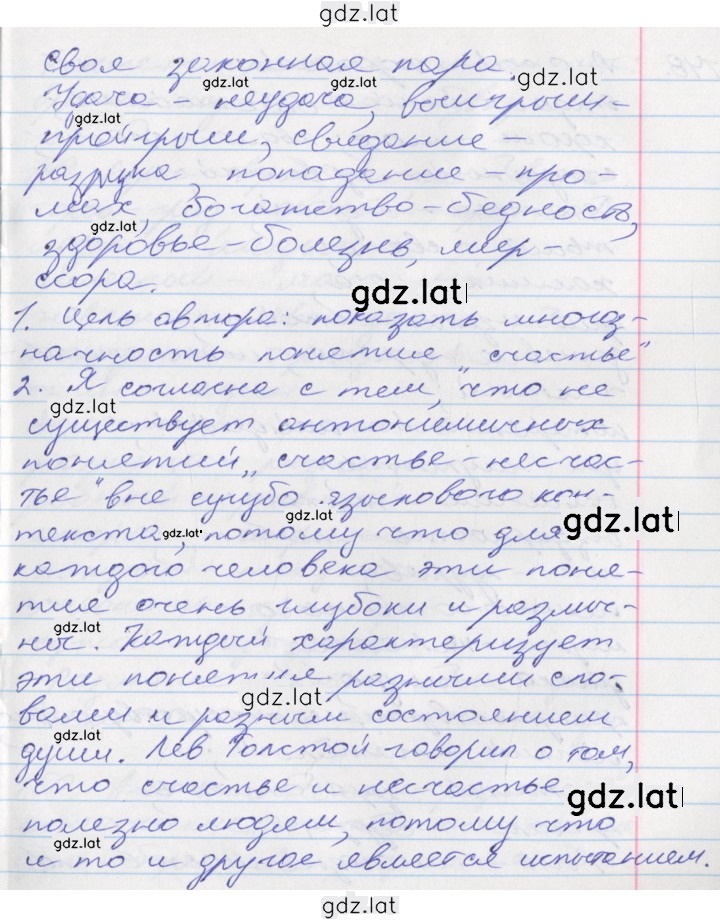 gdz.lat
своя законная пара.
gdz.lat gdz.lat gdz.lat
Удача - неудача, выигрыш-
gdz.lat
проигрыш, свидание -
разлука, попадание - про-
мах, богатство - бедность,
здоровье - болезнь, мир -
ссора.
gdz.lat
1. Цель автора: показать многоз-
начность понятие "счастье"
2. Я согласна с тем, "что не
gdz.lat
существует антонимичных
понятий „счастье - несчас-
тье" вне сугубо языкового кон-
gdz.lat gdz.lat
текста, потому что для
gdz.lat
каждого человека эти поня-
тия очень глубоки и размыч-
gdz.lat
ны. Каждый характеризует
эти понятия разными сло-
gdz.lat
вами и разным состоянием
gdz.lat
души. Лев Толстой говорил о том,
что счастье и несчастье
gdz.lat
полезно людям, потому что
gdz.lat
и то и другое является испытанием.
gdz.lat